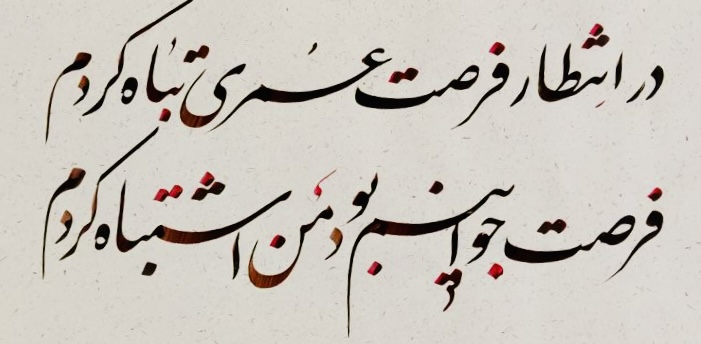 در انتظار فرصت عمری تباه کردم
فرصت جوانیم بود من اشتباه کردم